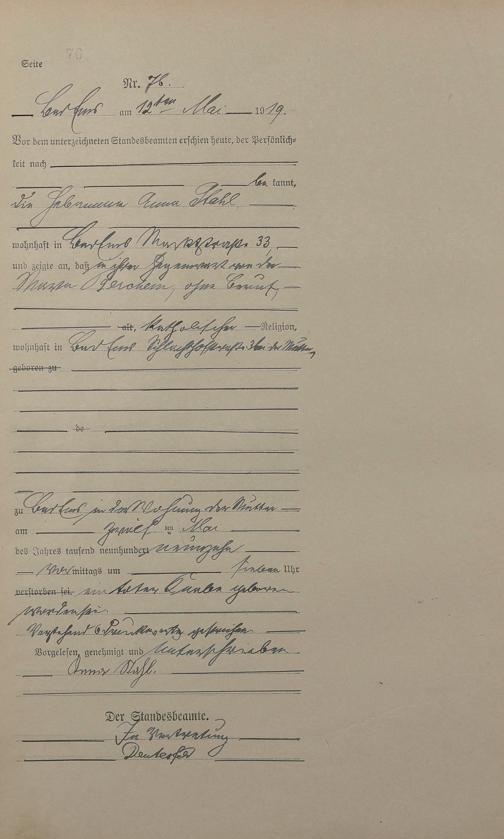 76
Seite
Nr. 76.
Bad Ems am 12ten Mai 1919.
Vor dem unterzeichneten Standesbeamten erschien heute, der Persönlich-
keit nach
be kannt,
die Hebamme Anna Stahl
wohnhaft in Bad Ems Marktstraße 33,
und zeigte an, daß in ihrer Gegenwart von der
Maria, ohne Beruf,
alt, katholischer Religion,
wohnhaft in Bad Ems bei der Mutter,
geboren zu
de
zu Bad Ems in der Wohnung der Mutter
am zwölf ten Mai
des Jahres tausend neunhundert neunzehn
Vor mittags um sieben Uhr
verstorben sei ein toter Knabe geboren
worden sei
Vorstehend 6 Druckworte gestrichen
Vorgelesen, genehmigt und unterschrieben
Anna Stahl.
Der Standesbeamte.
In Vertretung